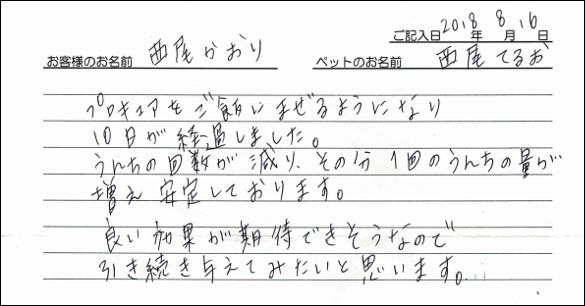 ご記入日 2018年 8月 16日
お客様のお名前 西尾かおり ペットのお名前 西尾てるお
プロキュアをご飯にまぜるようになり
10日が経過しました。
うんちの回数が減り、その分1回のうんちの量が
増え安定しております。
良い効果が期待できそうなので
引き続き与えてみたいと思います。